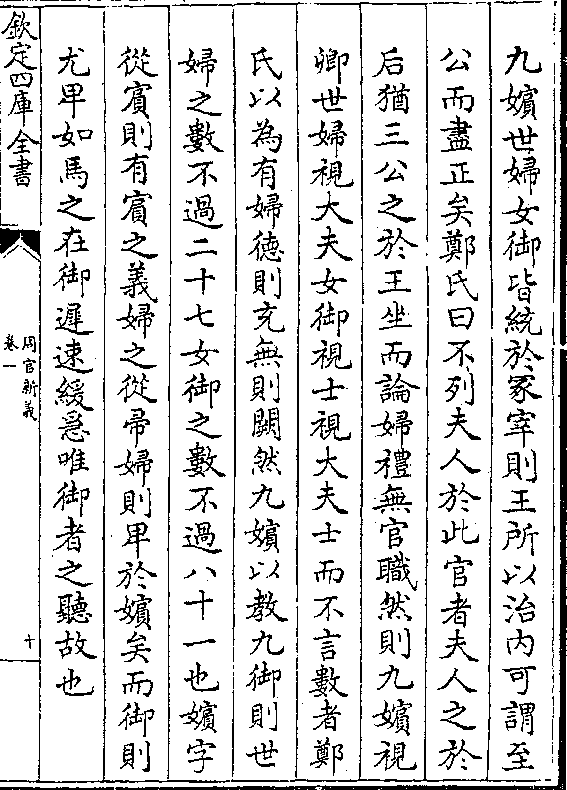 九嬪世婦女御皆統於冢宰則王所以治内可謂至
公而盡正矣鄭氏曰不列夫人於此官者夫人之於
后猶三公之於王坐而論婦禮無官職然則九嬪視
卿世婦視大夫女御視士視大夫士而不言數者鄭
氏以為有婦徳則充無則闕然九嬪以教九御則世
婦之數不過二十七女御之數不過八十一也嬪字
從賓則有賓之義婦之從帚婦則卑於嬪矣而御則
尤卑如馬之在御遲速緩急唯御者之聽故也
欽定四庫全書
周官新義
卷一
十